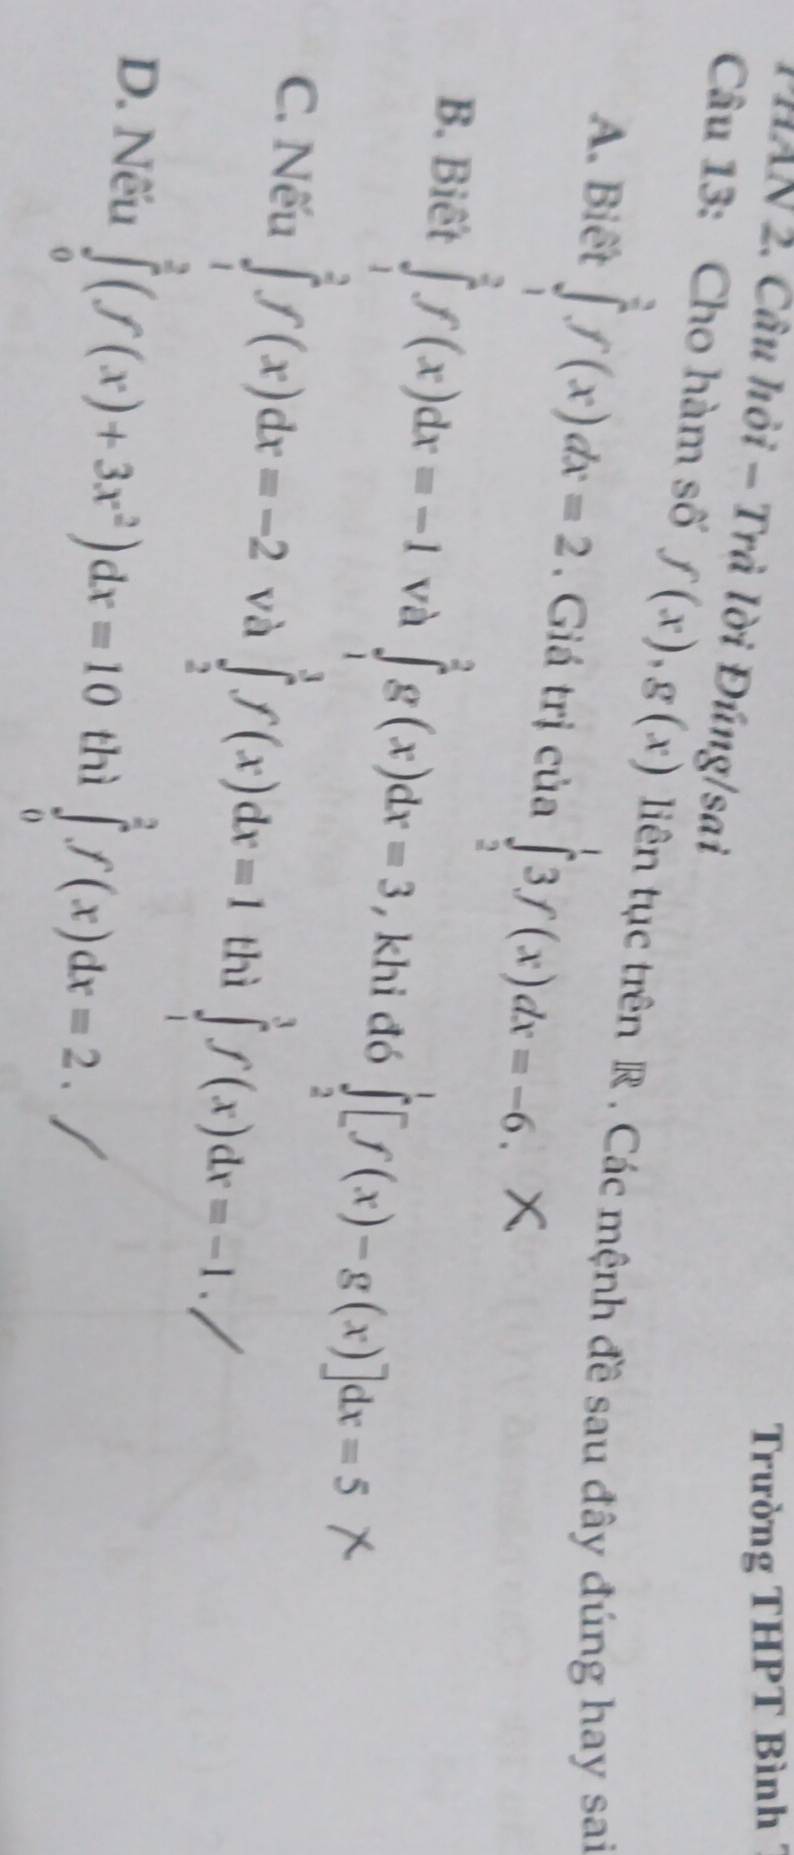 Trường THPT Bình
PHẦN 2. Câu hỏi – Trả lời Đúng/sai
Câu 13: Cho hàm số f(x), g(x) liên tục trên ℝ. Các mệnh đề sau đây đúng hay sai
A. Biết ∫₁² f(x)dx = 2. Giá trị của ∫₂¹ 3f(x)dx = −6. X
B. Biết ∫₁² f(x)dx = −1 và ∫₁² g(x)dx = 3, khi đó ∫₂¹ [f(x) − g(x)]dx = 5 X
C. Nếu ∫₁² f(x)dx = −2 và ∫₂³ f(x)dx = 1 thì ∫₁³ f(x)dx = −1. /
D. Nếu ∫₀² (f(x) + 3x²)dx = 10 thì ∫₀² f(x)dx = 2. /